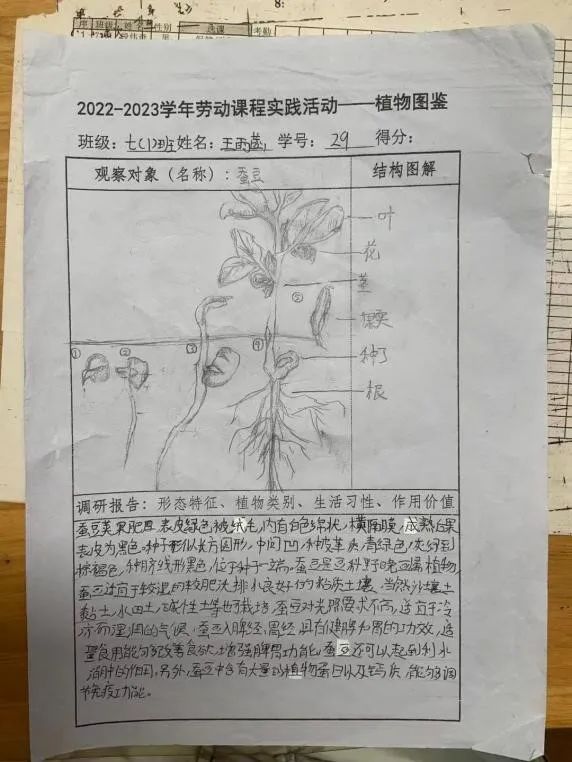 序 班级 姓 性别 选课 考勤
8:
2022-2023学年劳动课程实践活动——植物图鉴
班级：七(12)班姓名：王雨 学号：29 得分：
观察对象（名称）：蚕豆 结构图解
叶
花
茎
⑤
果实
① ② ③ ④
种子
根
调研报告：形态特征、植物类别、生活习性、作用价值
蚕豆荚果肥厚，表皮绿色被绒毛，内有白色绵状，横隔膜，成熟后果
表皮为黑色。种子形似长方圆形，中间凹，种皮革质，青绿色，灰绿到
棕褐色，种脐线形黑色，位于种子一端。蚕豆是豆科野豌豆属植物，
蚕豆适宜于较湿的较肥沃排水良好的粘质土壤。当然沙壤土
黏土，水田土，碱性土等也可栽培，蚕豆对光照要求不高，适宜于冷
凉而湿润的气候，蚕豆入脾经，胃经，具有健脾和胃的功效，适
量食用能够改善食欲，增强脾胃功能，蚕豆还可以起到利水
消肿的作用，另外，蚕豆中含有大量的植物蛋白以及钙质，能够调
节免疫功能。